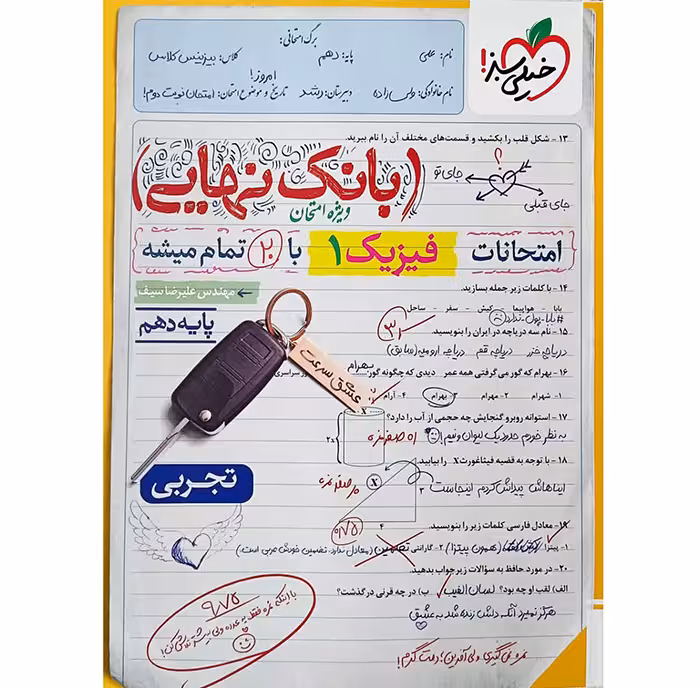 خیلی سبز!
برگ امتحانی:
نام: علی
پایه: دهم
کلاس: بیزینس کلاس
نام خانوادگی: ولی زاده
دبیرستان: رشد
تاریخ و موضوع امتحان: امروز! امتحان نوبت دوم!
۱۳- شکل قلب را بکشید و قسمت‌های مختلف آن را نام ببرید.
؟
جای تو
جای قبلی
(بانک نهایی)
ویژه امتحان
امتحانات فیزیک ۱ با ۲۰ تمام میشه
۱۴- با کلمات زیر جمله بسازید.
بابا - هواپیما - کیش - سفر - ساحل
#بابا-پول-ندارد
مهندس علیرضا سیف
پایه دهم
۱۵- نام سه دریاچه در ایران را بنویسید.
دریاچه خزر دریاچه قم دریاچه ارومیه (سابق)
۱۶- بهرام که گور می‌گرفتی همه عمر دیدی که چگونه گور بهرام
۱- شهرام ۲- مهرام ۳- بهرام ۴- آرام
عشق سرعت
۱۷- استوانه روبرو گنجایش چه حجمی از آب را دارد؟
به نظر خودم حدود یک لیوان و نیم!
x
۲x
۱۸- با توجه به قضیه فیثاغورث X را بیابید.
ایناهاش پیداش کردم اینجاست
x
۳
۴
تجربی
۱۹- معادل فارسی کلمات زیر را بنویسید.
۱- پیتزا (همون پیتزا) ۲- گارانتی تضمین (معادل ندارد. تضمین خودش عربی است.)
۲۰- در مورد حافظ به سؤالات زیر جواب بدهید.
الف) لقب او چه بود؟ لسان الغیب ب) در چه قرنی در گذشت؟
هرگز نمیرد آنکه دلش زنده شد به عشق
۹/۷۵